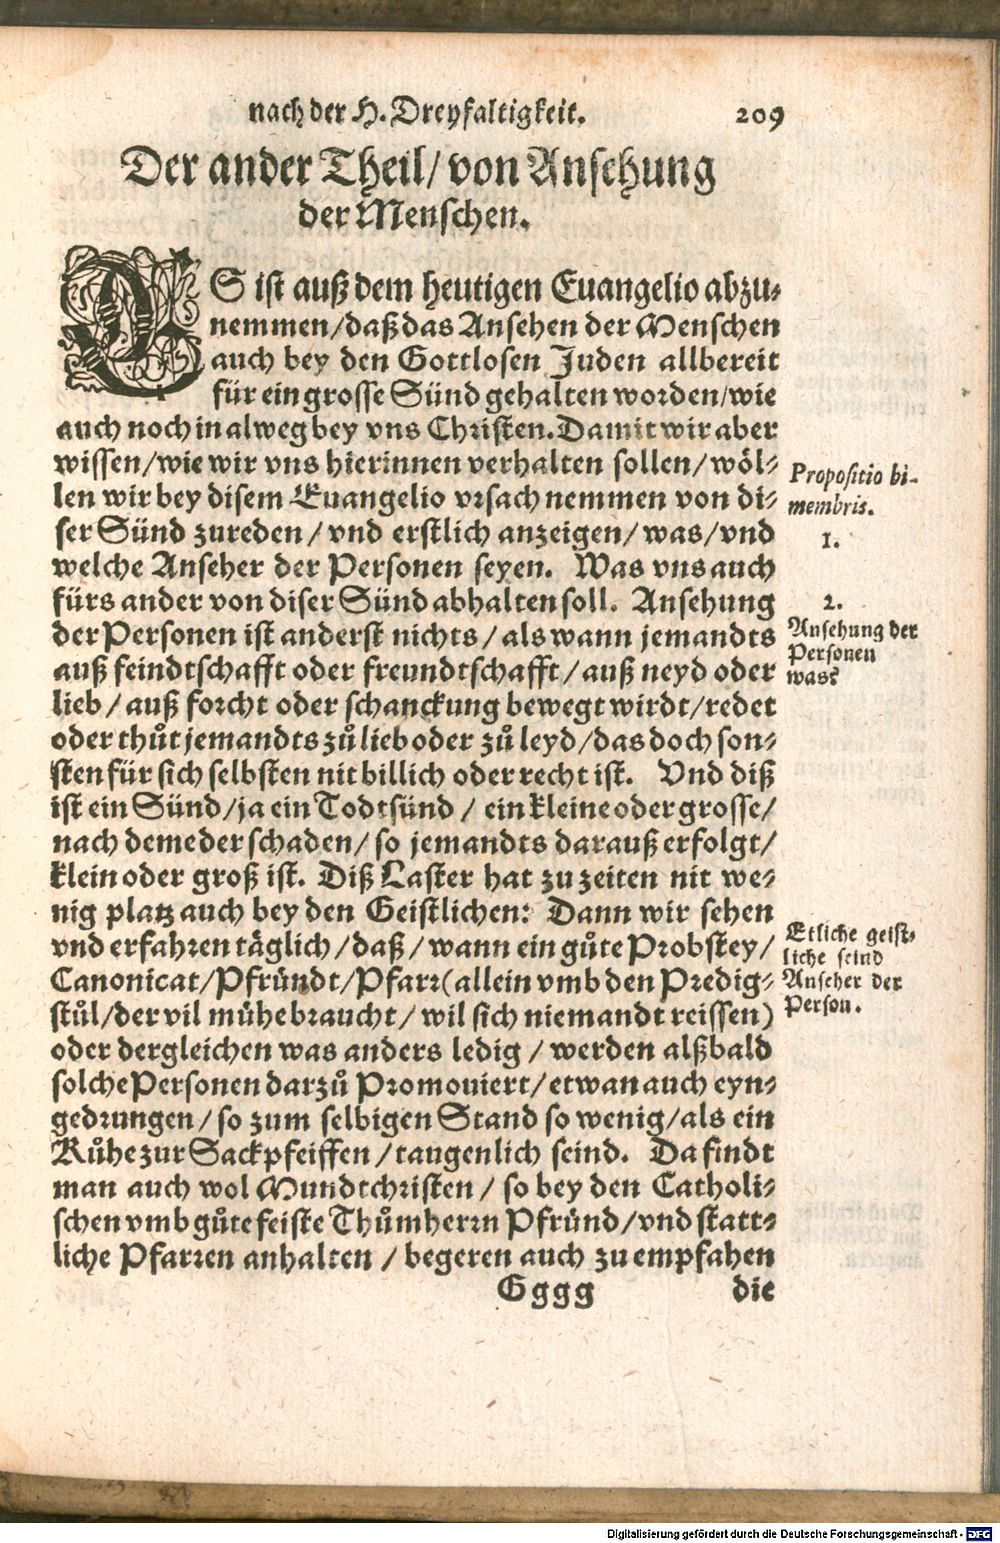 nach der H. Dreyfaltigkeit. 209
Der ander Theil/ von Ansehung
der Menschen.
ES ist auß dem heutigen Euangelio abzu-
nemmen/daß das Ansehen der Menschen
auch bey den Gottlosen Juden allbereit
für ein grosse Sünd gehalten worden/wie
auch noch in alweg bey vns Christen. Damit wir aber
wissen/wie wir vns hierinnen verhalten sollen/wöl-
len wir bey disem Euangelio vrsach nemmen von di-
ser Sünd zureden/vnd erstlich anzeigen/was/vnd
welche Anseher der Personen seyen. Was vns auch
fürs ander von diser Sünd abhalten soll. Ansehung
der Personen ist anderst nichts/als wann jemandts
auß feindtschafft oder freundtschafft/auß neyd oder
lieb/auß forcht oder schanckung bewegt wirdt/redet
oder thůt jemandts zů lieb oder zů leyd/das doch son-
sten für sich selbsten nit billich oder recht ist. Vnd diß
ist ein Sünd/ja ein Todtsünd/ein kleine oder grosse/
nach deme der schaden/so jemandts darauß erfolgt/
klein oder groß ist. Diß Laster hat zu zeiten nit we-
nig platz auch bey den Geistlichen: Dann wir sehen
vnd erfahren täglich/daß/wann ein gůte Probstey/
Canonicat/Pfründt/Pfarr(allein vmb den Predig-
stůl/der vil mühe braucht/wil sich niemandt reissen)
oder dergleichen was anders ledig/werden alßbald
solche Personen darzů Promouiert/etwan auch eyn-
gedrungen/so zum selbigen Stand so wenig/als ein
Kůhe zur Sackpfeiffen/taugenlich seind. Da findt
man auch wol Mundtchristen/so bey den Catholi-
schen vmb gůte feiste Thůmherrn Pfründ/vnd statt-
liche Pfarren anhalten/begeren auch zu empfahen
Gggg die
Propositio bi-
membris.
1.
2.
Ansehung der
Personen
was?
Etliche geist-
liche seind
Anseher der
Person.
Digitalisierung gefördert durch die Deutsche Forschungsgemeinschaft - DFG